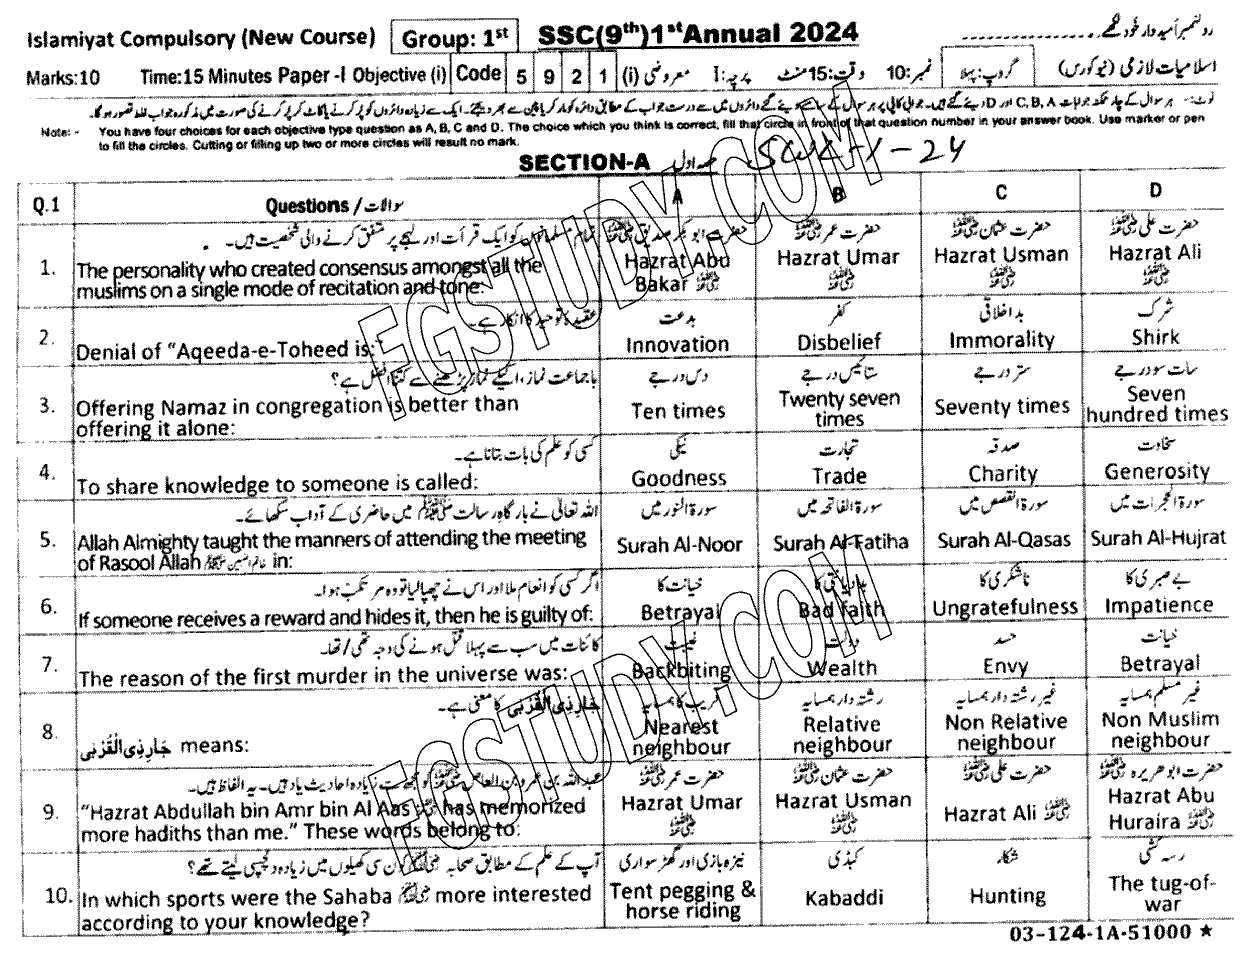 Islamiyat Compulsory (New Course) Group: 1st SSC(9th)1st Annual 2024 رولنمبر اُمیدوار خود لکھے
Marks:10 Time:15 Minutes Paper -I Objective (i) Code 5 9 2 1 (i) معروضی پرچہ: I وقت: 15 منٹ نمبر: 10 گروپ: پہلا اسلامیات لازمی (نیو کورس)
نوٹ:- ہر سوال کے چار ممکنہ جوابات C, B, A اور D دیئے گئے ہیں۔ جوابی کاپی پر ہر سوال کے سامنے دیئے گئے دائروں میں سے درست جواب کے مطابق دائرہ کو مارکر یا پین سے بھر دیجئے۔ ایک سے زیادہ دائروں کو پُر کرنے یا کاٹ کر پُر کرنے کی صورت میں مذکورہ جواب غلط تصور ہوگا۔
Note: - You have four choices for each objective type question as A, B, C and D. The choice which you think is correct, fill that circle in front of that question number in your answer book. Use marker or pen
to fill the circles. Cutting or filling up two or more circles will result no mark.
SECTION-A حصہ اول 1-24
Q.1 Questions / سوالات A B C D
1. تمام مسلمانوں کو ایک قرأت اور لہجے پر متفق کرنے والی شخصیت ہیں۔ حضرت ابوبکر صدیق رضی اللہ عنہ حضرت عمر رضی اللہ عنہ حضرت عثمان رضی اللہ عنہ حضرت علی رضی اللہ عنہ
The personality who created consensus amongst all the Hazrat Abu Hazrat Umar Hazrat Usman Hazrat Ali
muslims on a single mode of recitation and tone: Bakar رضی اللہ عنہ رضی اللہ عنہ رضی اللہ عنہ رضی اللہ عنہ
2. عقیدہ توحید کا انکار ہے۔ بدعت کفر بداخلاقی شرک
Denial of "Aqeeda-e-Toheed is:" Innovation Disbelief Immorality Shirk
3. باجماعت نماز، اکیلے نماز پڑھنے سے کتنا افضل ہے؟ دس درجے ستائیس درجے ستر درجے سات سو درجے
Offering Namaz in congregation is better than Ten times Twenty seven Seventy times Seven
offering it alone: times hundred times
4. کسی کو علم کی بات بتانا ہے۔ نیکی تجارت صدقہ سخاوت
To share knowledge to someone is called: Goodness Trade Charity Generosity
5. اللہ تعالیٰ نے بارگاہِ رسالت ﷺ میں حاضری کے آداب سکھائے۔ سورۃ النور میں سورۃ الفاتحہ میں سورۃ القصص میں سورۃ الحجرات میں
Allah Almighty taught the manners of attending the meeting Surah Al-Noor Surah Al-Fatiha Surah Al-Qasas Surah Al-Hujrat
of Rasool Allah خاتم النبیین ﷺ in:
6. اگر کسی کو انعام ملا اور اس نے چھپا لیا تو وہ مرتکب ہوا۔ خیانت کا بددیانتی کا ناشکری کا بے صبری کا
If someone receives a reward and hides it, then he is guilty of: Betrayal Bad faith Ungratefulness Impatience
7. کائنات میں سب سے پہلا قتل ہونے کی وجہ تھی/تھا۔ غیبت دولت حسد خیانت
The reason of the first murder in the universe was: Backbiting Wealth Envy Betrayal
8. جَارِذِی الْقُرْبٰی کا معنی ہے۔ قریب کا ہمسایہ رشتہ دار ہمسایہ غیر رشتہ دار ہمسایہ غیر مسلم ہمسایہ
جَارِذِی الْقُرْبٰی means: Nearest Relative Non Relative Non Muslim
neighbour neighbour neighbour neighbour
9. عبداللہ بن عمرو بن العاص رضی اللہ عنہ کو مجھ سے زیادہ احادیث یاد ہیں۔ یہ الفاظ ہیں۔ حضرت عمر رضی اللہ عنہ حضرت عثمان رضی اللہ عنہ حضرت علی رضی اللہ عنہ حضرت ابوھریرہ رضی اللہ عنہ
"Hazrat Abdullah bin Amr bin Al Aas رضی اللہ عنہ has memorized Hazrat Umar Hazrat Usman Hazrat Ali رضی اللہ عنہ Hazrat Abu
more hadiths than me." These words belong to: رضی اللہ عنہ رضی اللہ عنہ Huraira رضی اللہ عنہ
10. آپ کے علم کے مطابق صحابہ رضی اللہ عنہم کون سی کھیلوں میں زیادہ دلچسپی لیتے تھے؟ نیزہ بازی اور گھڑ سواری کبڈی شکار رسہ کشی
In which sports were the Sahaba رضی اللہ عنہم more interested Tent pegging & Kabaddi Hunting The tug-of-
according to your knowledge? horse riding war
03-124-1A-51000 ★
FGSTUDY.COM
FGSTUDY.COM